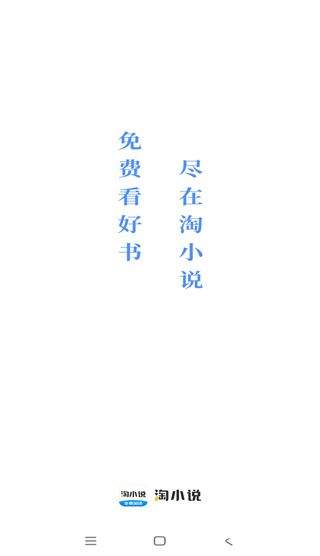 免费看好书
尽在淘小说
淘小说
淘小说